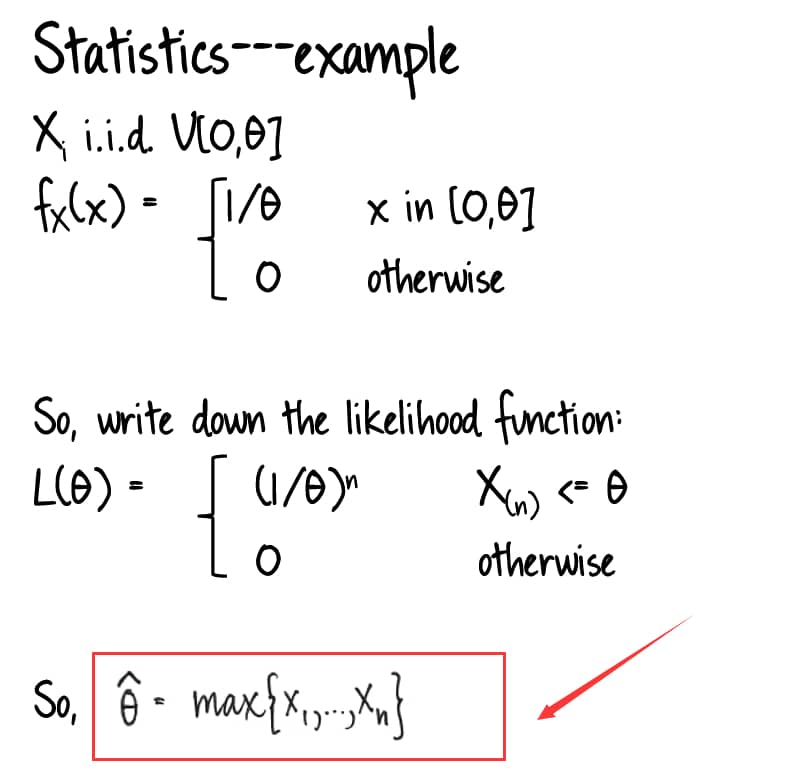 Statistics---example
X_i i.i.d. U[0,θ]
f_X(x) = { 1/θ x in [0,θ]
0 otherwise
So, write down the likelihood function:
L(θ) = { (1/θ)^n X_(n) <= θ
0 otherwise
So, θ̂ = max{x_1,...,x_n}